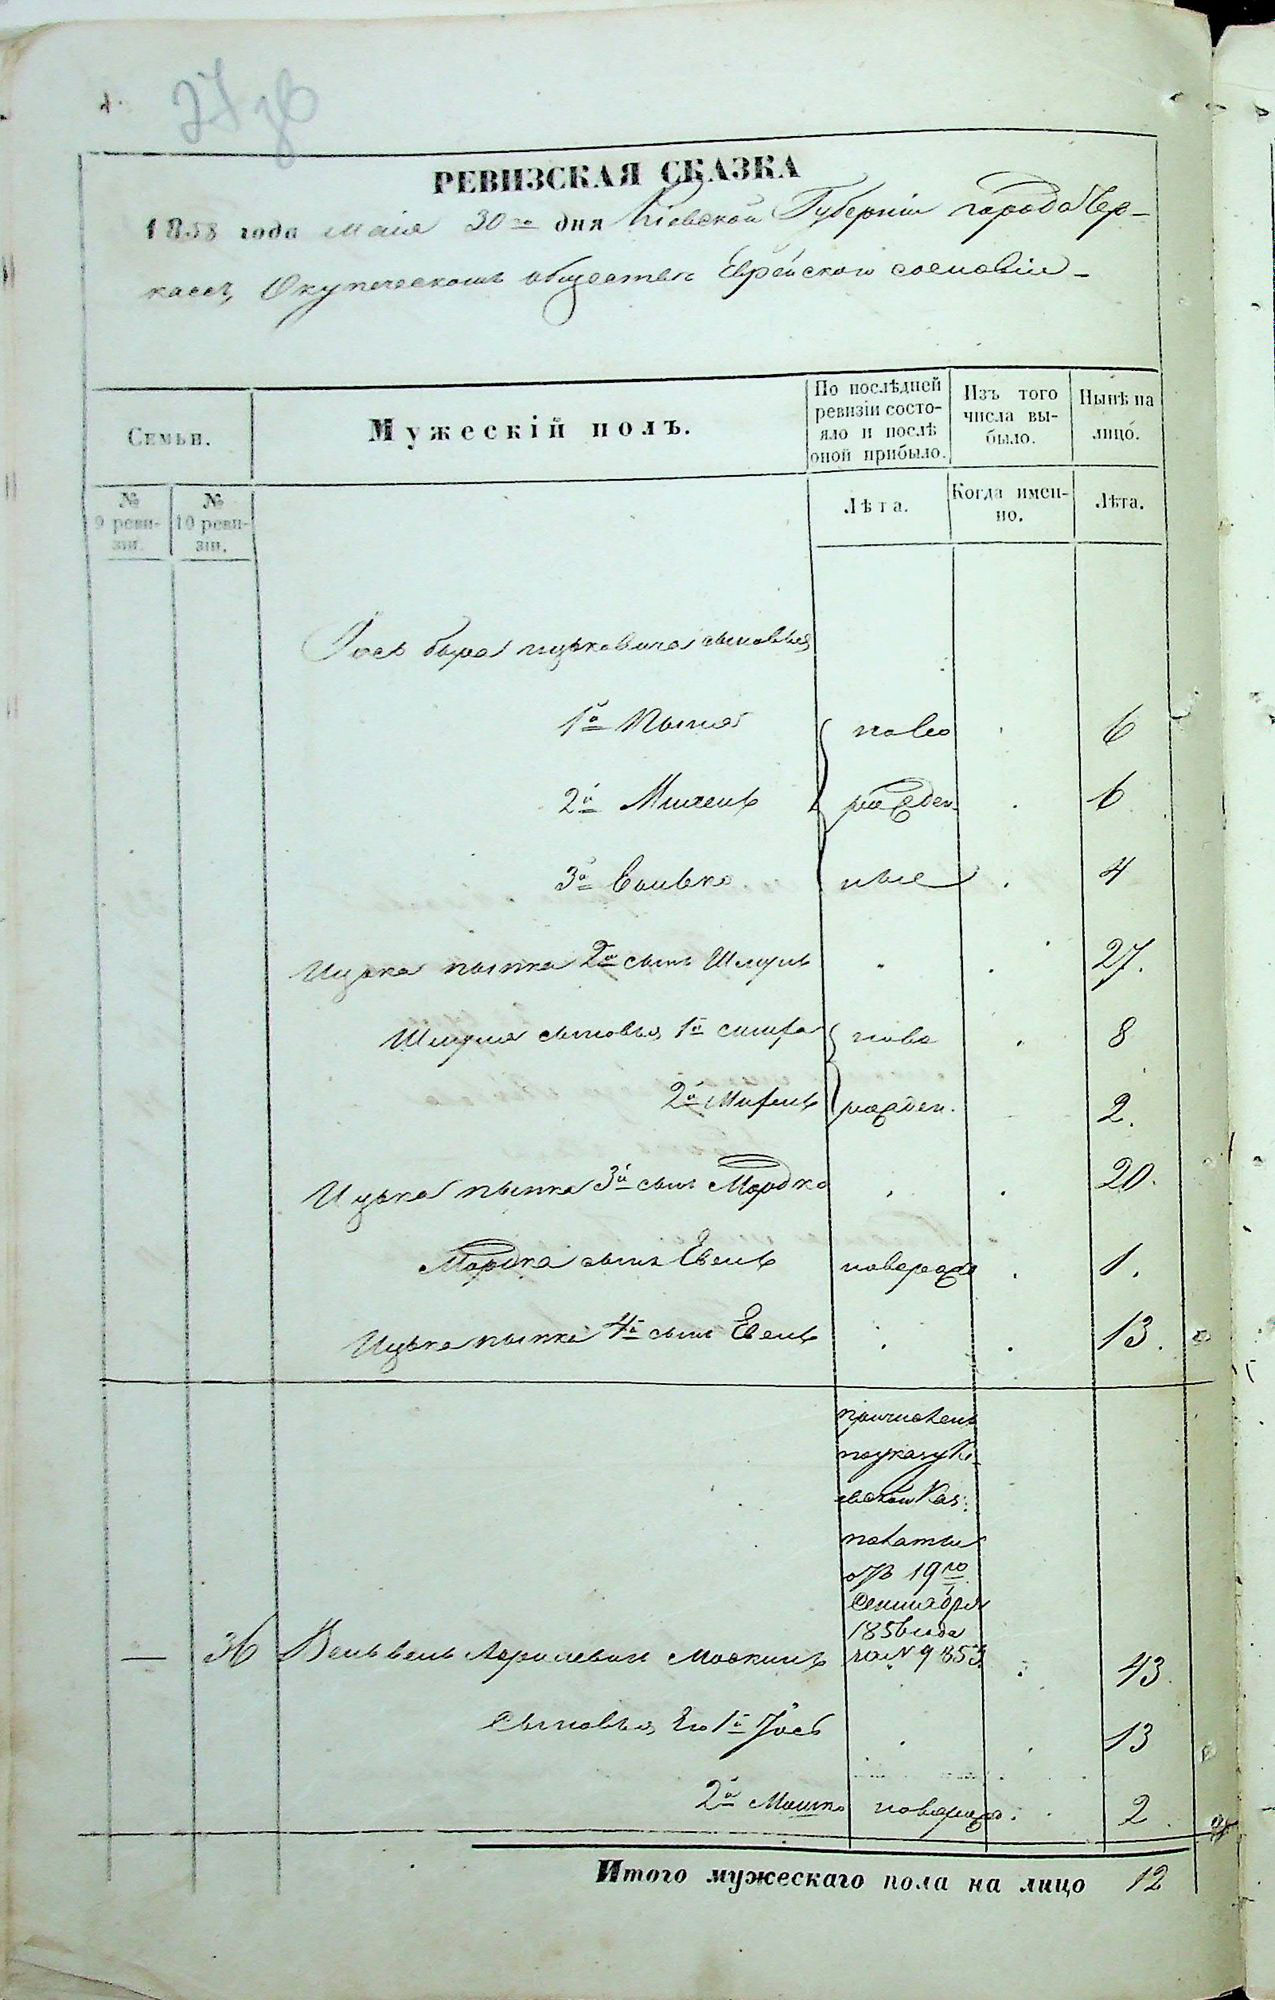 27 зв
РЕВИЗСКАЯ СКАЗКА
1858 года Маія 30го дня Кіевской Губерніи города Чер-
касъ, О купеческомъ обществе Еврейского сословія
Семьи.
Мужескій полъ.
По послѣдней ревизіи состо-
яло и послѣ оной прибыло.
Изъ того числа вы-
было.
Нынѣ на лицо.
№ 9 реви-
зіи.
№ 10 реви-
зіи.
Лѣта.
Когда имен-
но.
Лѣта.
Іось Ицьковича сыновья
1й ново 6
2й рожден- 6
3й ные 4
Ицька 2й сынъ Шмуль 27.
Шмуля сыновья 1й ново 8
2й рожден. 2.
Ицька 3й сынъ Мордко 20.
Мордка сынъ новорож 1.
Ицька 4й сынъ 13.
причисленъ
по указу Кі-
евской Каз:
палаты
отъ 19го
Сентября
1856 года
— 36 за № 9853 43
Сыновья его 1й Іось 13
2й Мошко новорож. 2
Итого мужескаго пола на лицо 12